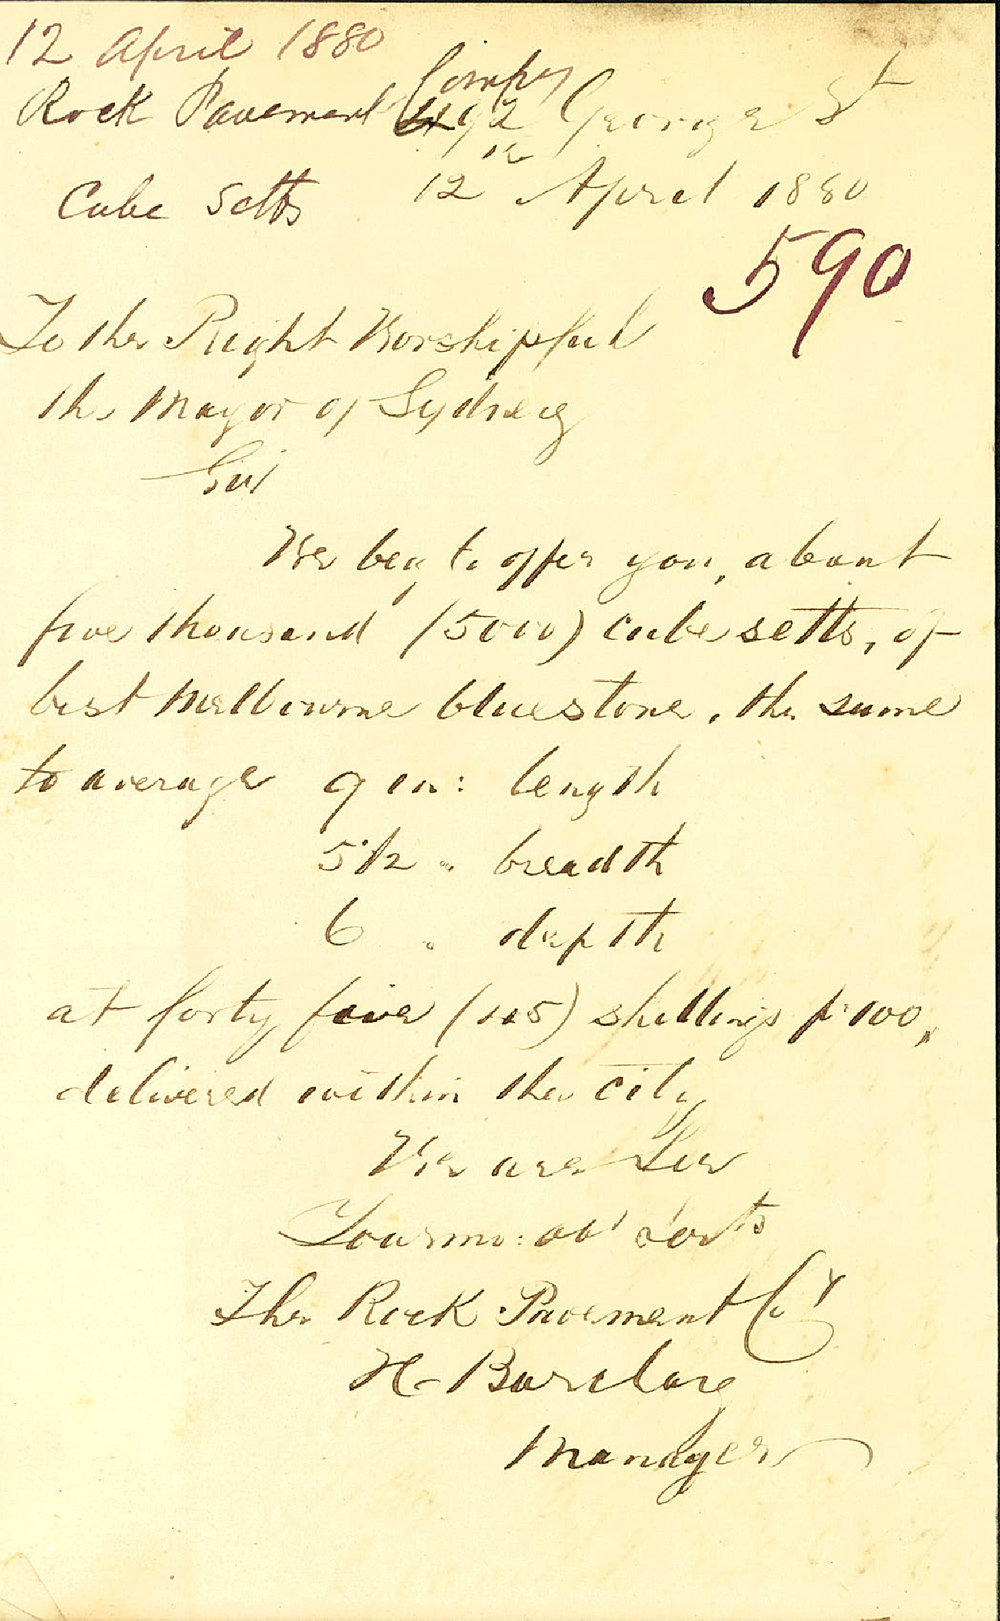 12 April 1880
Rock Pavement Compy
492 George St
Cube Setts
12th April 1880
590
To the Right Worshipful
the Mayor of Sydney
Sir
We beg to offer you, about
five thousand (5000) cube setts, of
best Melbourne bluestone, the same
to average 9 in: length
5 1/2 " breadth
6 " depth
at forty five (45) shillings pr 100,
delivered within the city
We are Sir
Your mo: obt Servts
The Rock Pavement Coy
H Barclay
Manager